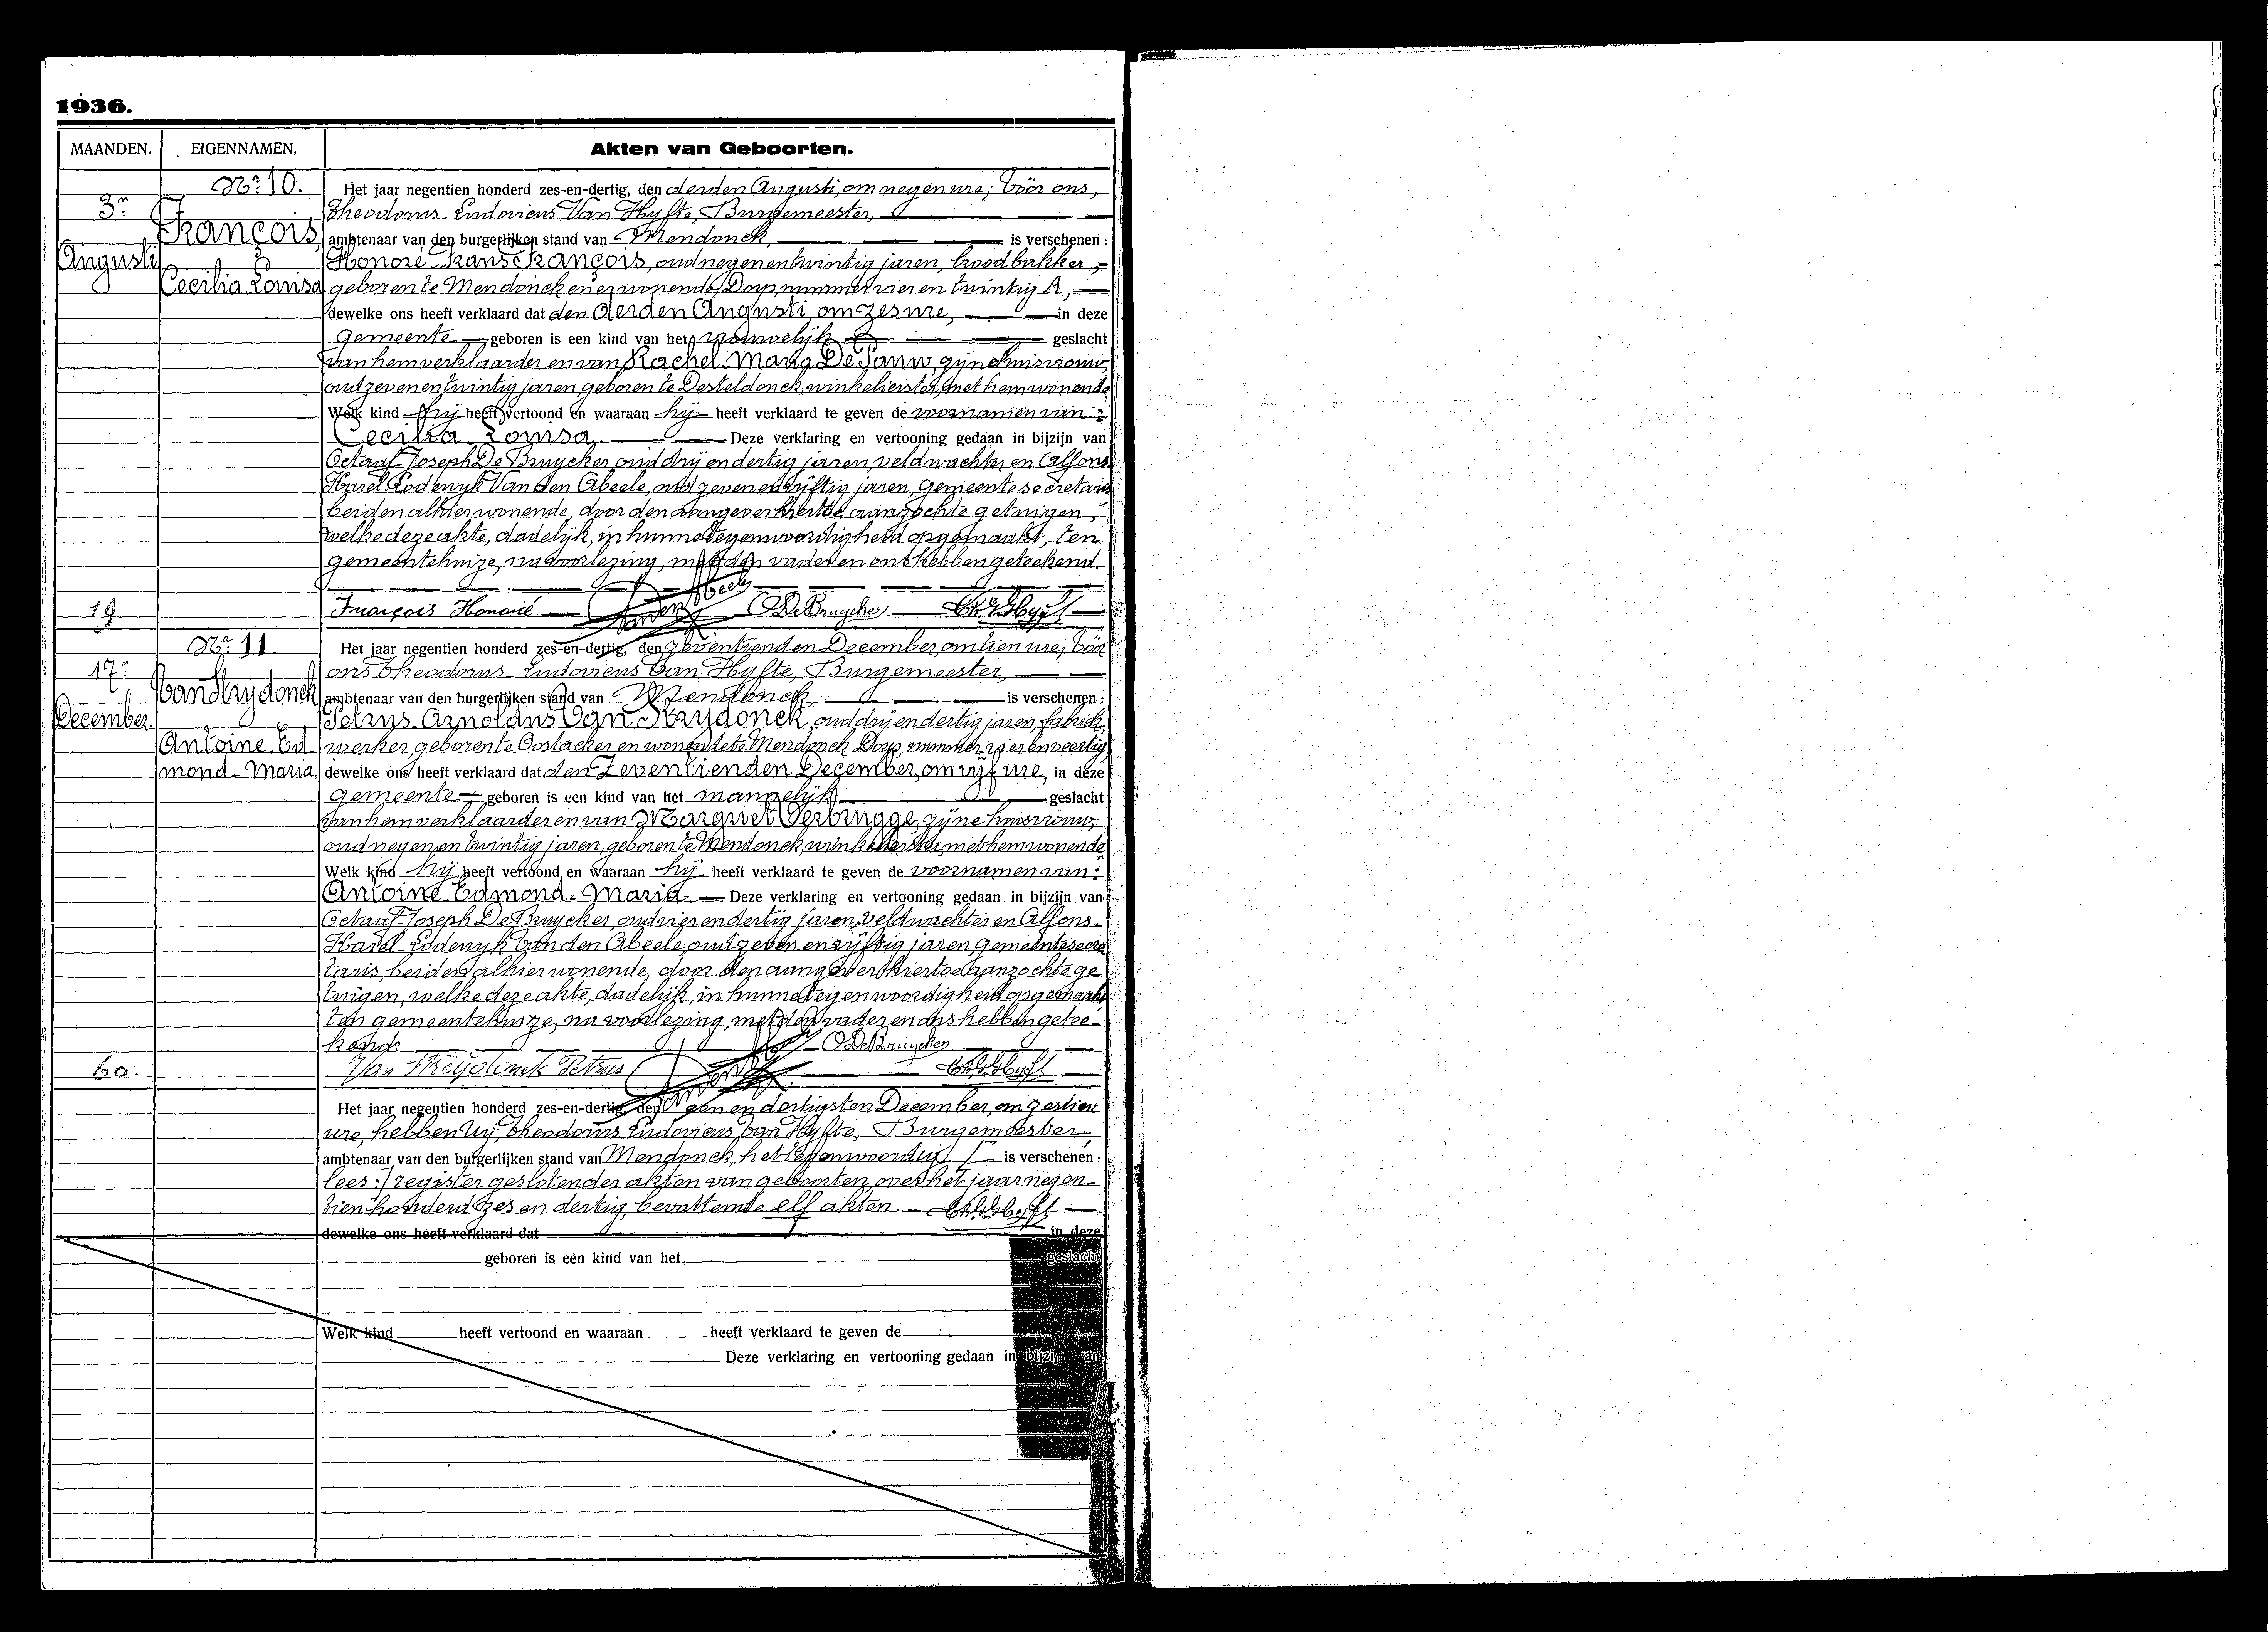 1936.
MAANDEN. EIGENNAMEN. Akten van Geboorten.
Nr. 10.
3n
Augusti
François
Cecilia Louisa
Het jaar negentien honderd zes-en-dertig, den derden Augusti, om negen ure, vóór ons,
Theodorus-Ludovicus Van Hyfte, Burgemeester,
ambtenaar van den burgerlijken stand van Mendonck, is verschenen :
Honoré-Frans François, oud negenentwintig jaren, broodbakker,
geboren te Mendonck en er wonende, Dorp, nummer vier en twintig A,
dewelke ons heeft verklaard dat den derden Augusti, om zes ure, in deze
gemeente geboren is een kind van het vrouwelijk geslacht
van hem verklaarder en van Rachel-Maria De Pauw, zijne huisvrouw,
oud zevenentwintig jaren, geboren te Desteldonck, winkelierster, met hem wonende
Welk kind hij heeft vertoond en waaraan hij heeft verklaard te geven de voornamen van :
Cecilia Louisa. Deze verklaring en vertooning gedaan in bijzijn van
Octaaf-Joseph De Bruycker, oud drij en dertig jaren, veldwachter en Alfons-
Karel Lodewyk Van den Abeele, oud zeven en vijftig jaren, gemeentesecretaris
beiden alhier wonende, door den aangever hiertoe aanzochte getuigen,
welke deze akte, dadelijk, in hunne tegenwoordigheid opgemaakt, ten
gemeentehuize, na voorlezing, met den vader en ons hebben geteekend.
19
François Honoré O. De Bruycker
Nr. 11.
17n
December.
Van Strydonck
Antoine-Ed-
mond-Maria
Het jaar negentien honderd zes-en-dertig, den zeventienden December, om tien ure, vóór
ons Theodorus-Ludovicus Van Hyfte, Burgemeester,
ambtenaar van den burgerlijken stand van Mendonck is verschenen :
Petrus-Arnoldus Van Strydonck, oud drij en dertig jaren, fabriek-
werker, geboren te Oostacker en wonende te Mendonck Dorp, nummer vier en veertig
dewelke ons heeft verklaard dat den zeventienden December, om vijf ure, in deze
gemeente geboren is een kind van het mannelijk geslacht
van hem verklaarder en van Margriet Verbrugge, zijne huisvrouw,
oud negen en twintig jaren, geboren te Mendonck, winkelierster, met hem wonende
Welk kind hij heeft vertoond en waaraan hij heeft verklaard te geven de voornamen van :
Antoine-Edmond-Maria. Deze verklaring en vertooning gedaan in bijzijn van
Octaaf-Joseph De Bruycker, oud vier en dertig jaren, veldwachter en Alfons-
Karel-Lodewyk Van den Abeele, oud zeven en vijftig jaren gemeentesecre
taris, beiden alhier wonende, door den aangever hiertoe aanzochte ge
tuigen, welke deze akte, dadelijk, in hunne tegenwoordigheid opgemaakt
ten gemeentehuize, na voorlezing, met den vader en ons hebben getee-
kend.
O. De Bruycker
60.
Van Strydonck Petrus
Het jaar negentien honderd zes-en-dertig, den een en dertigsten December, om zestien
ure, hebben Wij, Theodorus Ludovicus Van Hyfte, Burgemeester
ambtenaar van den burgerlijken stand van Mendonck, het tegenwoordig is verschenen :
lees : register gesloten der akten van geboorten, over het jaar negen-
tien honderd zes en dertig, bevattende elf akten.
dewelke ons heeft verklaard dat in deze
geboren is een kind van het geslacht
Welk kind heeft vertoond en waaraan heeft verklaard te geven de
Deze verklaring en vertooning gedaan in bijzijn van